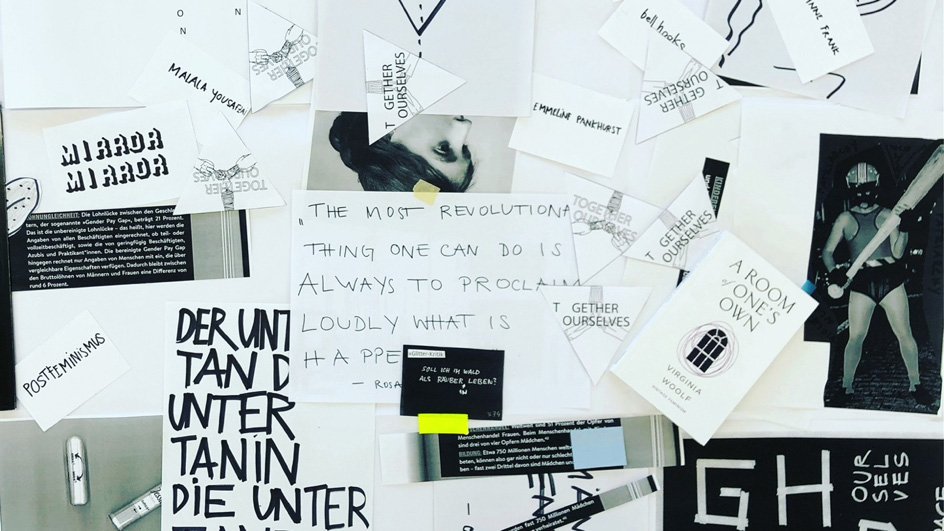 O
N
N
MALALA YOUSAFZAI
TOGETHER
OURSELVES
T GETHER
OURSELVES
bell hooks
T GETHER
OURSELVES
ANNE FRANK
EMMELINE PANKHURST
MIRROR
MIRROR
TOGETHER
OURSELVES
OHNUNGLEICHHEIT: Die Lohnlücke zwischen den Geschlech-
tern, der sogenannte »Gender Pay Gap«, beträgt 21 Prozent.
Das ist die unbereinigte Lohnlücke – das heißt, hier werden die
Angaben von allen Beschäftigten eingerechnet, ob teil- oder
vollzeitbeschäftigt, sowie die von geringfügig Beschäftigten,
Azubis und Praktikant*innen. Die bereinigte Gender Pay Gap
hingegen rechnet nur Angaben von Menschen mit ein, die über
vergleichbare Eigenschaften verfügen. Dadurch bleibt zwischen
den Bruttolöhnen von Männern und Frauen eine Differenz von
rund 6 Prozent.
„THE MOST REVOLUTIONA
THING ONE CAN DO IS
ALWAYS TO PROCLAIM
LOUDLY WHAT IS
HAPPE
— ROSA
TOGETHER
OURSELVES
T GETHER
OURSELVES
KINDER
T GETHER
OURSELVES
A ROOM
of ONE'S
OWN
VIRGINIA
WOOLF
POSTFEMINISMUS
DER UNT
TAN D
UNTER
TANIN
DIE UNTER
SOLL ICH IM WALD
ALS RÄUBER IN LEBEN?
S. 76
Menschenhandel Frauen. Beim Menschenhandel
sind drei von vier Opfern Mädchen.
BILDUNG: Etwa 750 Millionen Menschen welt
beten, können also gar nicht oder nur schlecht
ben – fast zwei Drittel davon sind Mädchen un
GH
OUR
SEL
VES